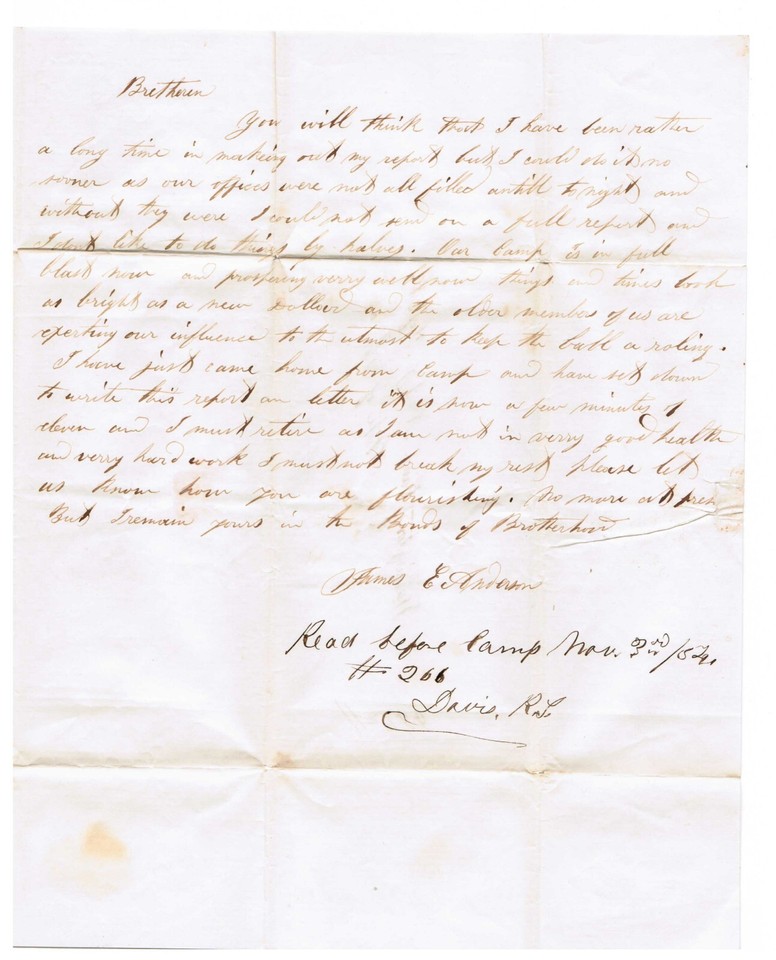 Bretheren
You will think that I have been rather
a long time in making out my report but I could do it no
sooner as our offices were not all filled untill to night and
without they were I could not send on a full report and
I dont like to do things by halves. Our Camp is in full
blast now and prospering verry well now things and times look
as bright as a new and the older members of us are
exerting our influence to the utmost to keep the ball a roling.
I have just came home from Camp and have set down
to write this report an letter it is now a few minutes of
eleven and I must retire as I am not in verry good health
and verry hard work I must not break my rest please let
us know how you are flourishing. No more at
But I remain yours in the Bonds of Brotherhood
James E Anderson
Read before Camp Nov. 3rd /54.
# 266
Davis, R.S.